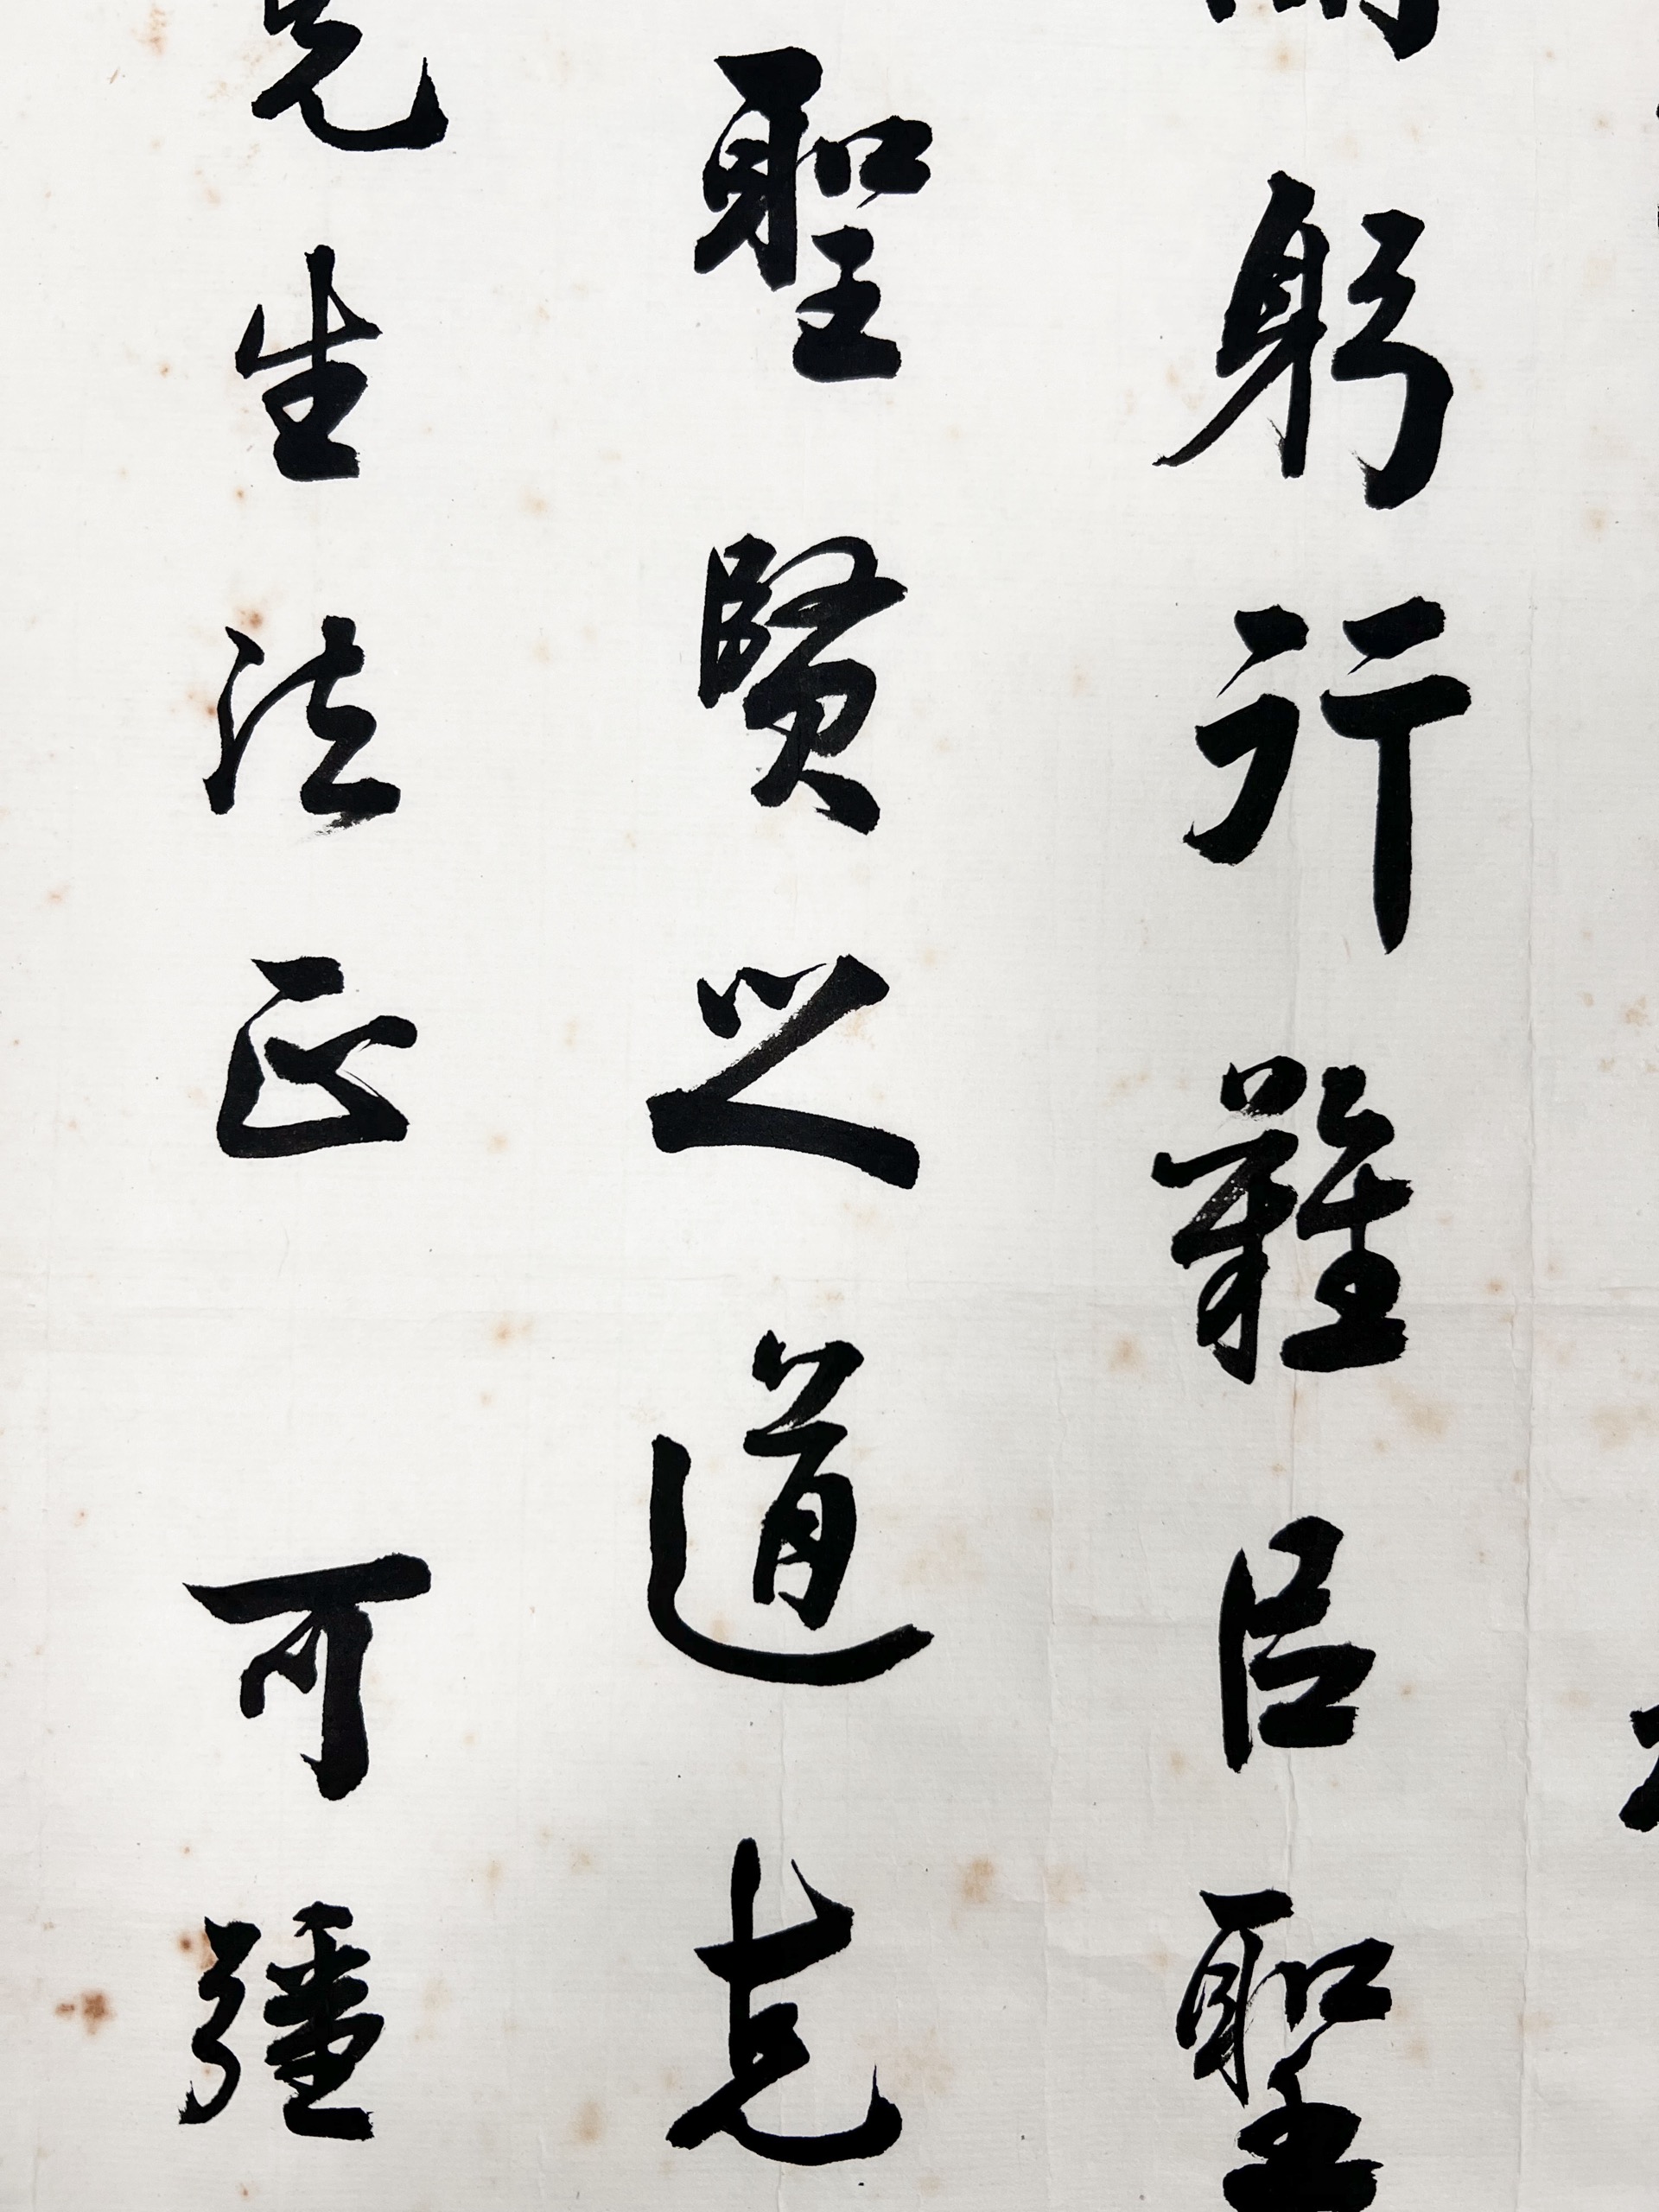 躬行難㠯聖
聖賢之道克
先生法正 可彊